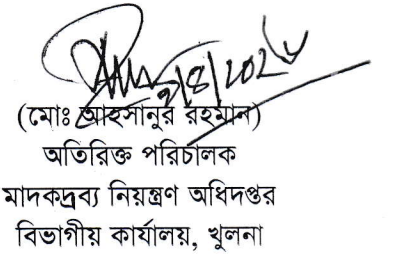 (মোঃ আহসানুর রহমান)
অতিরিক্ত পরিচালক
মাদকদ্রব্য নিয়ন্ত্রণ অধিদপ্তর
বিভাগীয় কার্যালয়, খুলনা